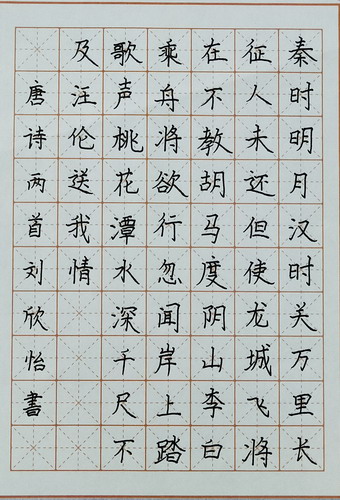 秦时明月汉时关万里长
征人未还但使龙城飞将
在不教胡马度阴山李白
乘舟将欲行忽闻岸上踏
歌声桃花潭水深千尺不
及汪伦送我情
唐诗两首刘欣怡書